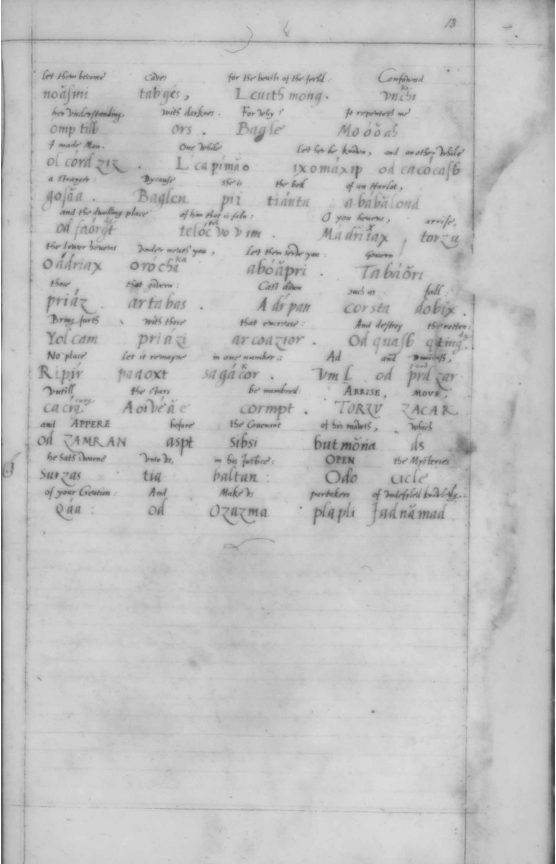 13
let them become caves for the beasts of the feild: Confownd
noäsmi tabges, Levith mong. vnchi
her vnderstanding, with darknes. For why? It repenteth me
omp tilb ors. Bagle Moóöah
I made Man. One while let her be knowen, and an other while
ol córdziz. L capímäo ixomáxip od cacócasb
a stranger: Bycause she is the bed of an Harlot,
gosäa. Baglen pii tiánta a bábälond
and the dwelling place of him that is faln: O you hevens, arrise,
od faórgt telóc vo v im. Mádriïax, torzu
the lower hevens vnder neath you, let them serve you: Govern
oádriax oróchä abóäpri. Tabáöri
those that govern: Cast down such as fall:
priáz artabas. Adrpan corsta dobix.
Bring furth with those that encrease: And destroy the rotten:
Yolcam priázi arcoazior. Od quasb qting.
No place let it remayne in one number: Ad and
Ripír paaoxt sagácor. Vml od prdzar
vntill the stars be numbred: ARRISE, MOVE,
cacrg, Aoivéäe cormpt. TORZV ZACAR
and APPERE before the Covenant of his mowth, which
od ZAMRAN aspt sibsi butmöna ds
he hath sworne vnto vs, in his Justice: OPEN the Mysteries
surzas tia baltan: Odo cicle
of your Creation: And Make vs partakers of vndefyled knowledg.
Qäa: od Ozazma plapli Iadnämad